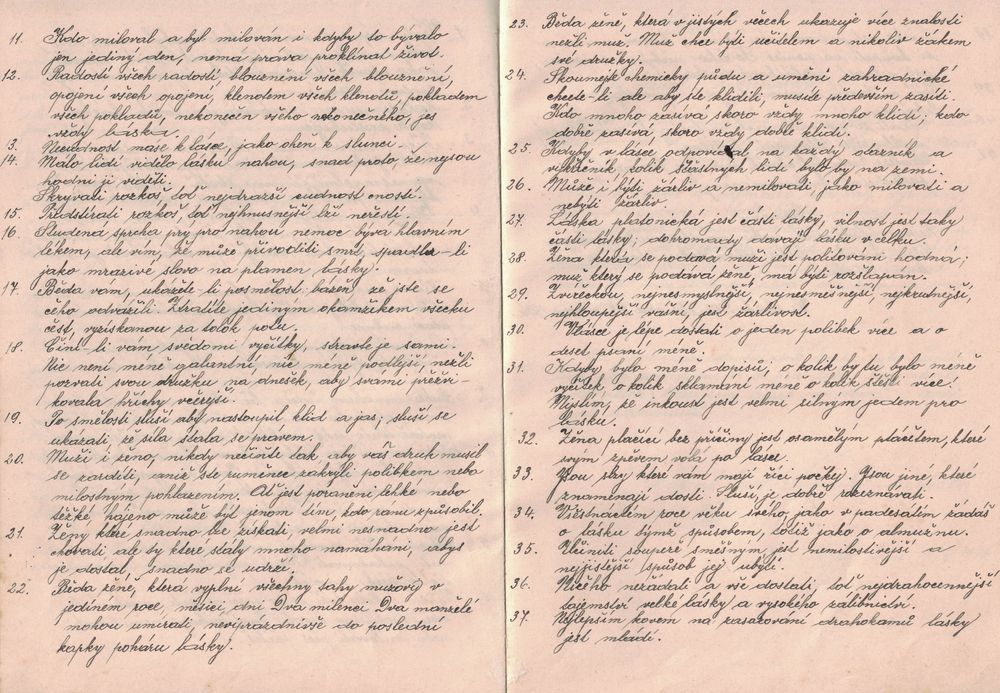 11. Kdo miloval a byl milován i kdyby to bývalo
jen jediný den, nemá práva proklínat život.
12. Radostí všech radostí, blouznění všech blouznění,
opojení všech opojení, klenotem všech klenotů, pokladem
všech pokladů, nekonečen všeho nekonečného, jes
vždy láska.
3. Necudnost máse k lásce, jako oheň k slunci.
14. Málo lidí vidělo lásku nahou, snad proto, že nejsou
hodni ji viděti.
Skrývati rozkoš, toť nejdražší cudnost cnosti.
15. Předstírati rozkoš, toť nejhnusnější lží neřesti.
16. Studená sprcha prý pro nahou nemoc bývá hlavním
lékem, ale vím, že může přivoditi smrt, spadla-li
jako mrazivé slovo na plamen lásky.
17. Běda vám, ukážete li posmělost bázeň zě jste se
čeho odvážili. Ztratíte jediným okamžikem všecku
čest, vyzískanou za tolik potu.
18. Činí-li vám svědomí výčitky, stravte je sami.
Nic není méně galantní, nic méně podlejší, nežli
pozvati svou družku na dnešek, aby s vámi přežví-
kovala hříchy včerejší.
19. Po smělosti sluší aby nastoupil klid a jas; sluší se
ukázati, že síla stala se právem.
20. Muži i ženo, nikdy nečiňte tak aby váš druh musil
se zarditi, aniž ste ruměnce zakryli polibkem nebo
milostným pohlazením. Ať jest poranění lehké nebo
těžké, hájeno může být jenom tím, kdo ranu způsobil.
21. Ženy které snadno lze získati, velmi nesnadno jest
chovati ale ty které stály mnoho namáhání, abys
je dostal, snadno se udrží.
22. Běda ženě, která vyplní všechny tahy mužovi v
jediném roce, měsíci, dni Dva milenci Dva manželé
mohou umírati, nevyprázdnivše do poslední
kapky poháru lásky.
23. Běda ženě, která v jistých věcech ukazuje více znalosti
nežli muž. Muž chce býti učitelem a nikoliv žákem
své družky.
24. Skoumejte chemicky půdu a umění zahradnické
chcete-li ale aby ste klidili, musíte především zasíti.
Kdo mnoho zasívá skoro vždy mnoho klidí; kdo
dobře zasívá, skoro vždy dobře klidí.
25. Kdyby v lásce odpovídal na každý otazník a
vykřičník, tolik šťastných lidí bylo by na zemi.
26. Může i býti žárliv a nemilovati, jako milovati a
nebýti žárliv.
27. Láska platonická jest částí lásky, vilnost jest taky
částí lásky; dohromady dávají lásku v celku.
28. Žena která se podává muži jest politování hodná;
muž který se podává ženě, má býti rozšlapán.
29. Zvířeckou, nejnesmyslnější, nejnesměšnější, nejkrutnější,
nejhloupější vášní, jest žárlivost.
30. V lásce je lépe dostati o jeden polibek více a o
deset psaní méně.
31. Kdyby bylo méně dopisů, o kolik by tu bylo méně
výčitek o kolik sklamání méně o kolik štěstí více!
Myslím, že inkoust jest velmi silným jedem pro
lásku.
32. Žena plačící bez příčiny jest osamělým ptáčetem, které
svým zpěvem volá po lásce.
33. Jsou slzy které vám mají říci počkej. Jsou jiné, které
znamenají dosti. Sluší, je dobře rozeznávati.
34. V šestnáctém roce věku svého, jako v padesátém žádáš
o lásku týmž způsobem, totiž jako o almužnu.
35. Učiniti soupeře směšným jest nemilostivější a
nejjistější způsob jej ubýti.
36. Ničeho nežádati a vše dostati, toť nejdrahocennější
tajemství velké lásky a vysokého zálibnictví.
37. Nejlepším kovem na zasazování drahokamů lásky
jest mládí.